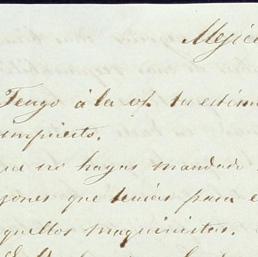 Mejic
Tengo á la vista tu estim
ue no hayas mandado
zones que tenias para e
quellos maquinistas.